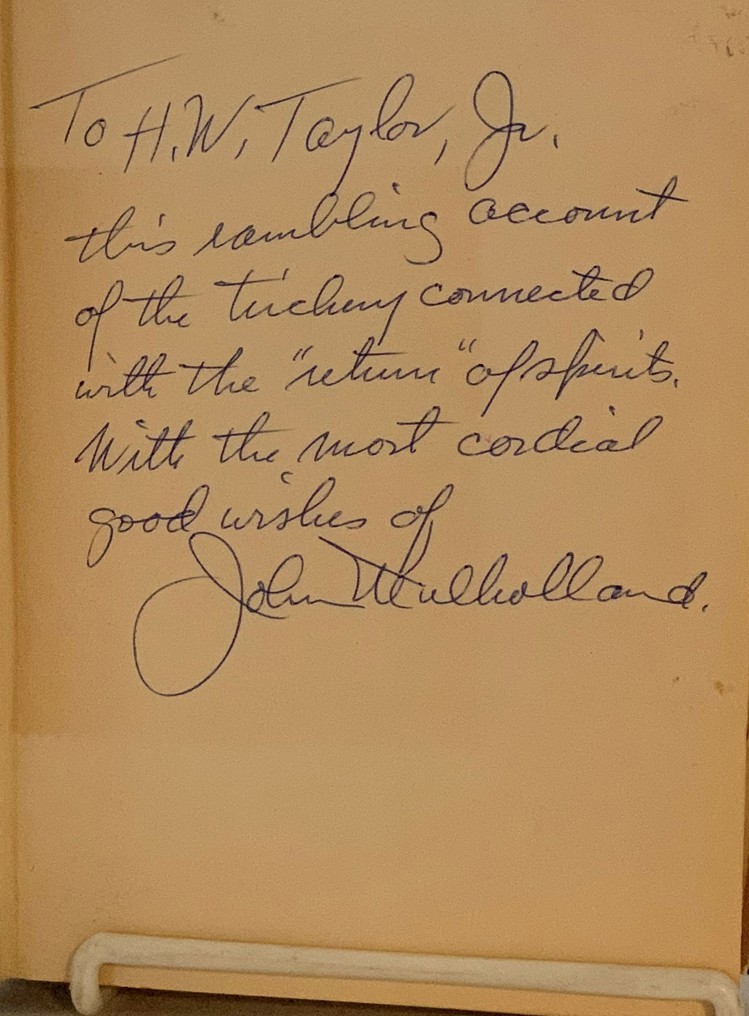 To H.W. Taylor, Jr.
this rambling account
of the trickery connected
with the "return" of spirits.
With the most cordial
good wishes of
John Mulholland.